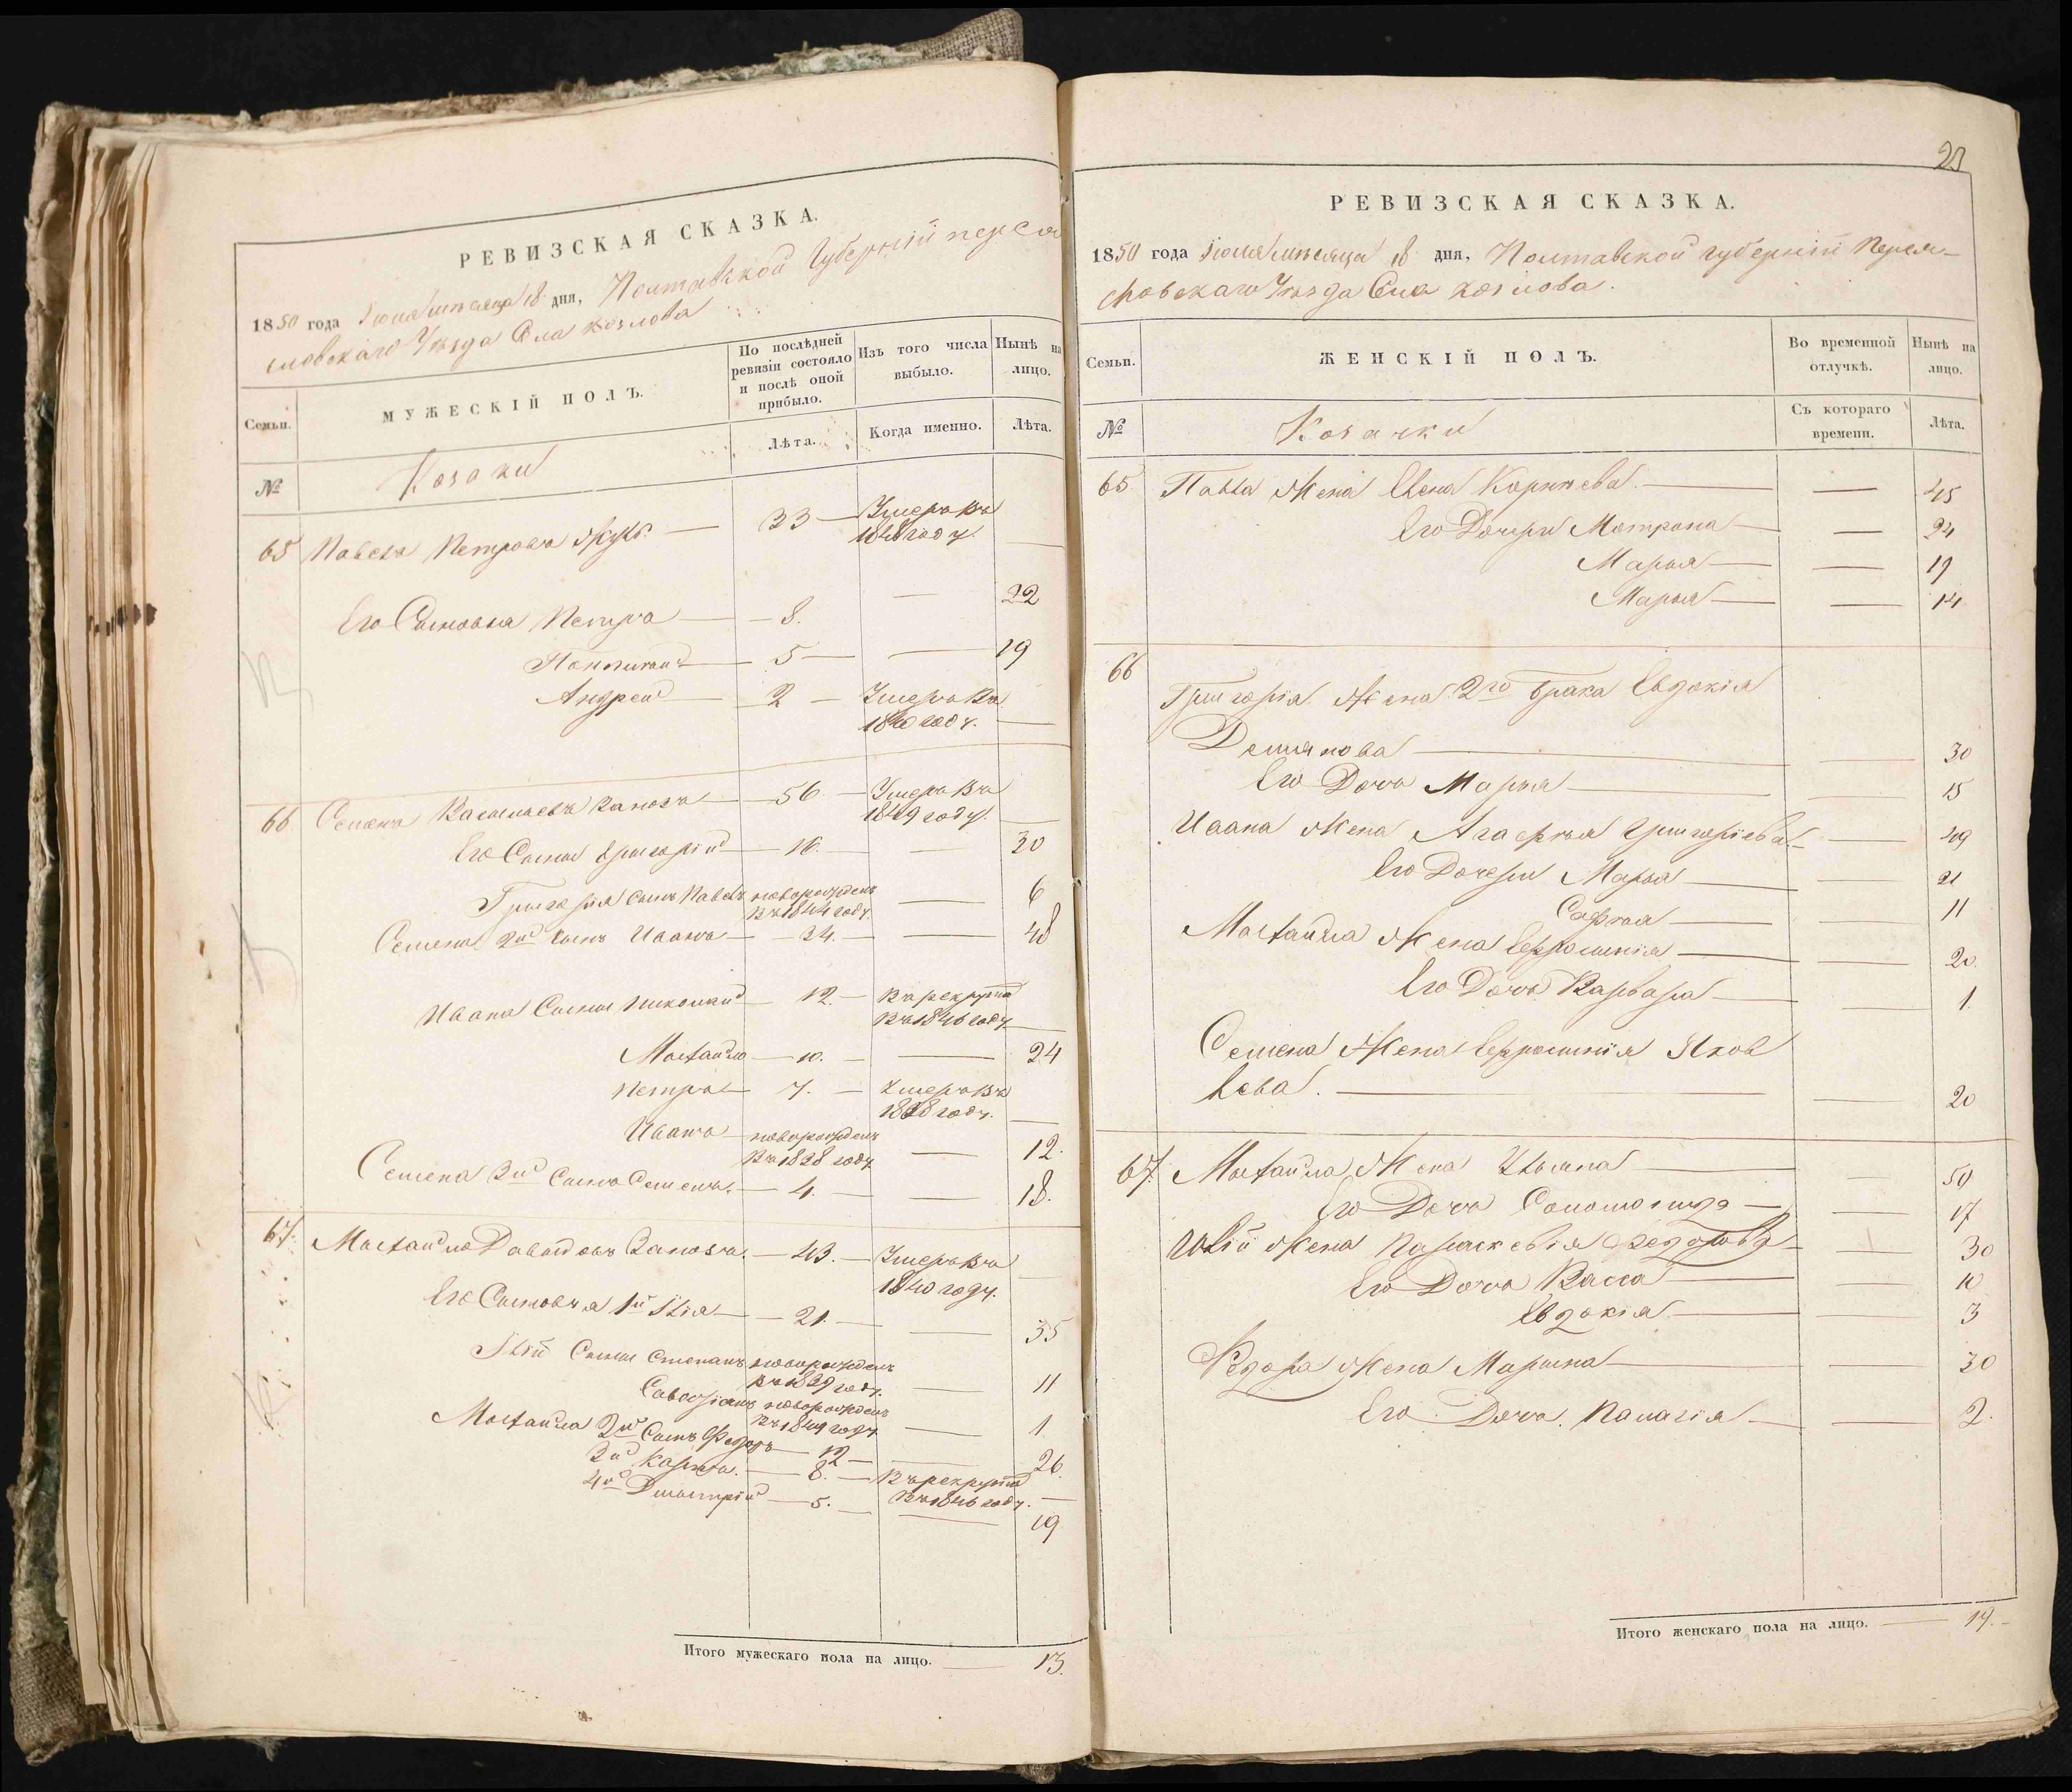 РЕВИЗСКАЯ СКАЗКА.
1850 года Июня мѣсяца 18 дня, Полтавской Губерніи Перея
словскаго Уѣзда Села Козлова
Семьи.
МУЖЕСКІЙ ПОЛЪ.
По послѣдней ревизіи состояло и послѣ оной прибыло.
Изъ того числа выбыло.
Нынѣ на лицо.
№
Козаки
Лѣта.
Когда именно.
Лѣта.
65 Павелъ Петровъ Жукъ. — 33 — Умеръ въ
1848 году. —
Его Сыновья Петръ — 8. — 22
Пантилимонъ — 5 — — 19
Андрей — 2 — Умеръ въ
1840 году. —
66 Семенъ Васильевъ — 56. — Умеръ въ
1849 году. —
Его Сынъ Григорій — 16. — — 30
Григорія сынъ Павелъ новорожденъ
въ 1844 году. — 6
Семена 2й сынъ Иванъ — 24. — — 48
Ивана Сынъ Николай — 12. — въ рекруты
въ 1846 году. —
Михайло — 10. — — 24
Петръ — 7. — Умеръ въ
1838 году. —
Иванъ новорожденъ
въ 1838 году — 12.
Семена 3й Сынъ Семенъ. — 4. — — 18.
67. Михайло Давыдовъ — 43. — Умеръ въ
1840 году. —
Его Сыновья 1й Илія — 21. — — 35
Иліи Сынъ Степанъ новорожденъ
въ 1839 году. — 11
новорожденъ
въ 1849 году. — 1
Михайла 2й Сынъ Федоръ — 12 — — 26.
3й Карпъ. — 8. — въ рекруты
въ 1846 году. —
4й Дмитрій — 5. — — 19
Итого мужескаго пола на лицо. — 13.
23
РЕВИЗСКАЯ СКАЗКА.
1850 года Июня мѣсяца 18 дня, Полтавской губерніи Перея-
словскаго Уѣзда Села Козлова.
Семьи.
ЖЕНСКІЙ ПОЛЪ.
Во временной отлучкѣ.
Нынѣ на лицо.
№
Козачки
Съ котораго времени.
Лѣта.
65 Павла Жена Елена Корнѣева. — — 45
Его Дочери Матрона — — 24
Марья — — 19
Марья — — 14
66
Григорія Жена 2го брака Евдокія
Демянова — — 30
Его Дочь Марья — — 15
Ивана Жена Агафья Григоріева — — 49
Его Дочери Марья — — 21
Софья — — 11
Михайла Жена Ефросинія — — 20.
Его Дочь Варвара — — 1.
Семена Жена Ефросинія Яков
лева. — — 20
67. Михайла Жена Ульяна — — 50
Его Дочь Соломонида — — 17
Иліи Жена Параскевія Федорова — — 30
Его Дочь Васса — — 10
Евдокія — — 3
Федора Жена Марина — — 30
Его Дочь Палагія — — 2.
Итого женскаго пола на лицо. — 19.